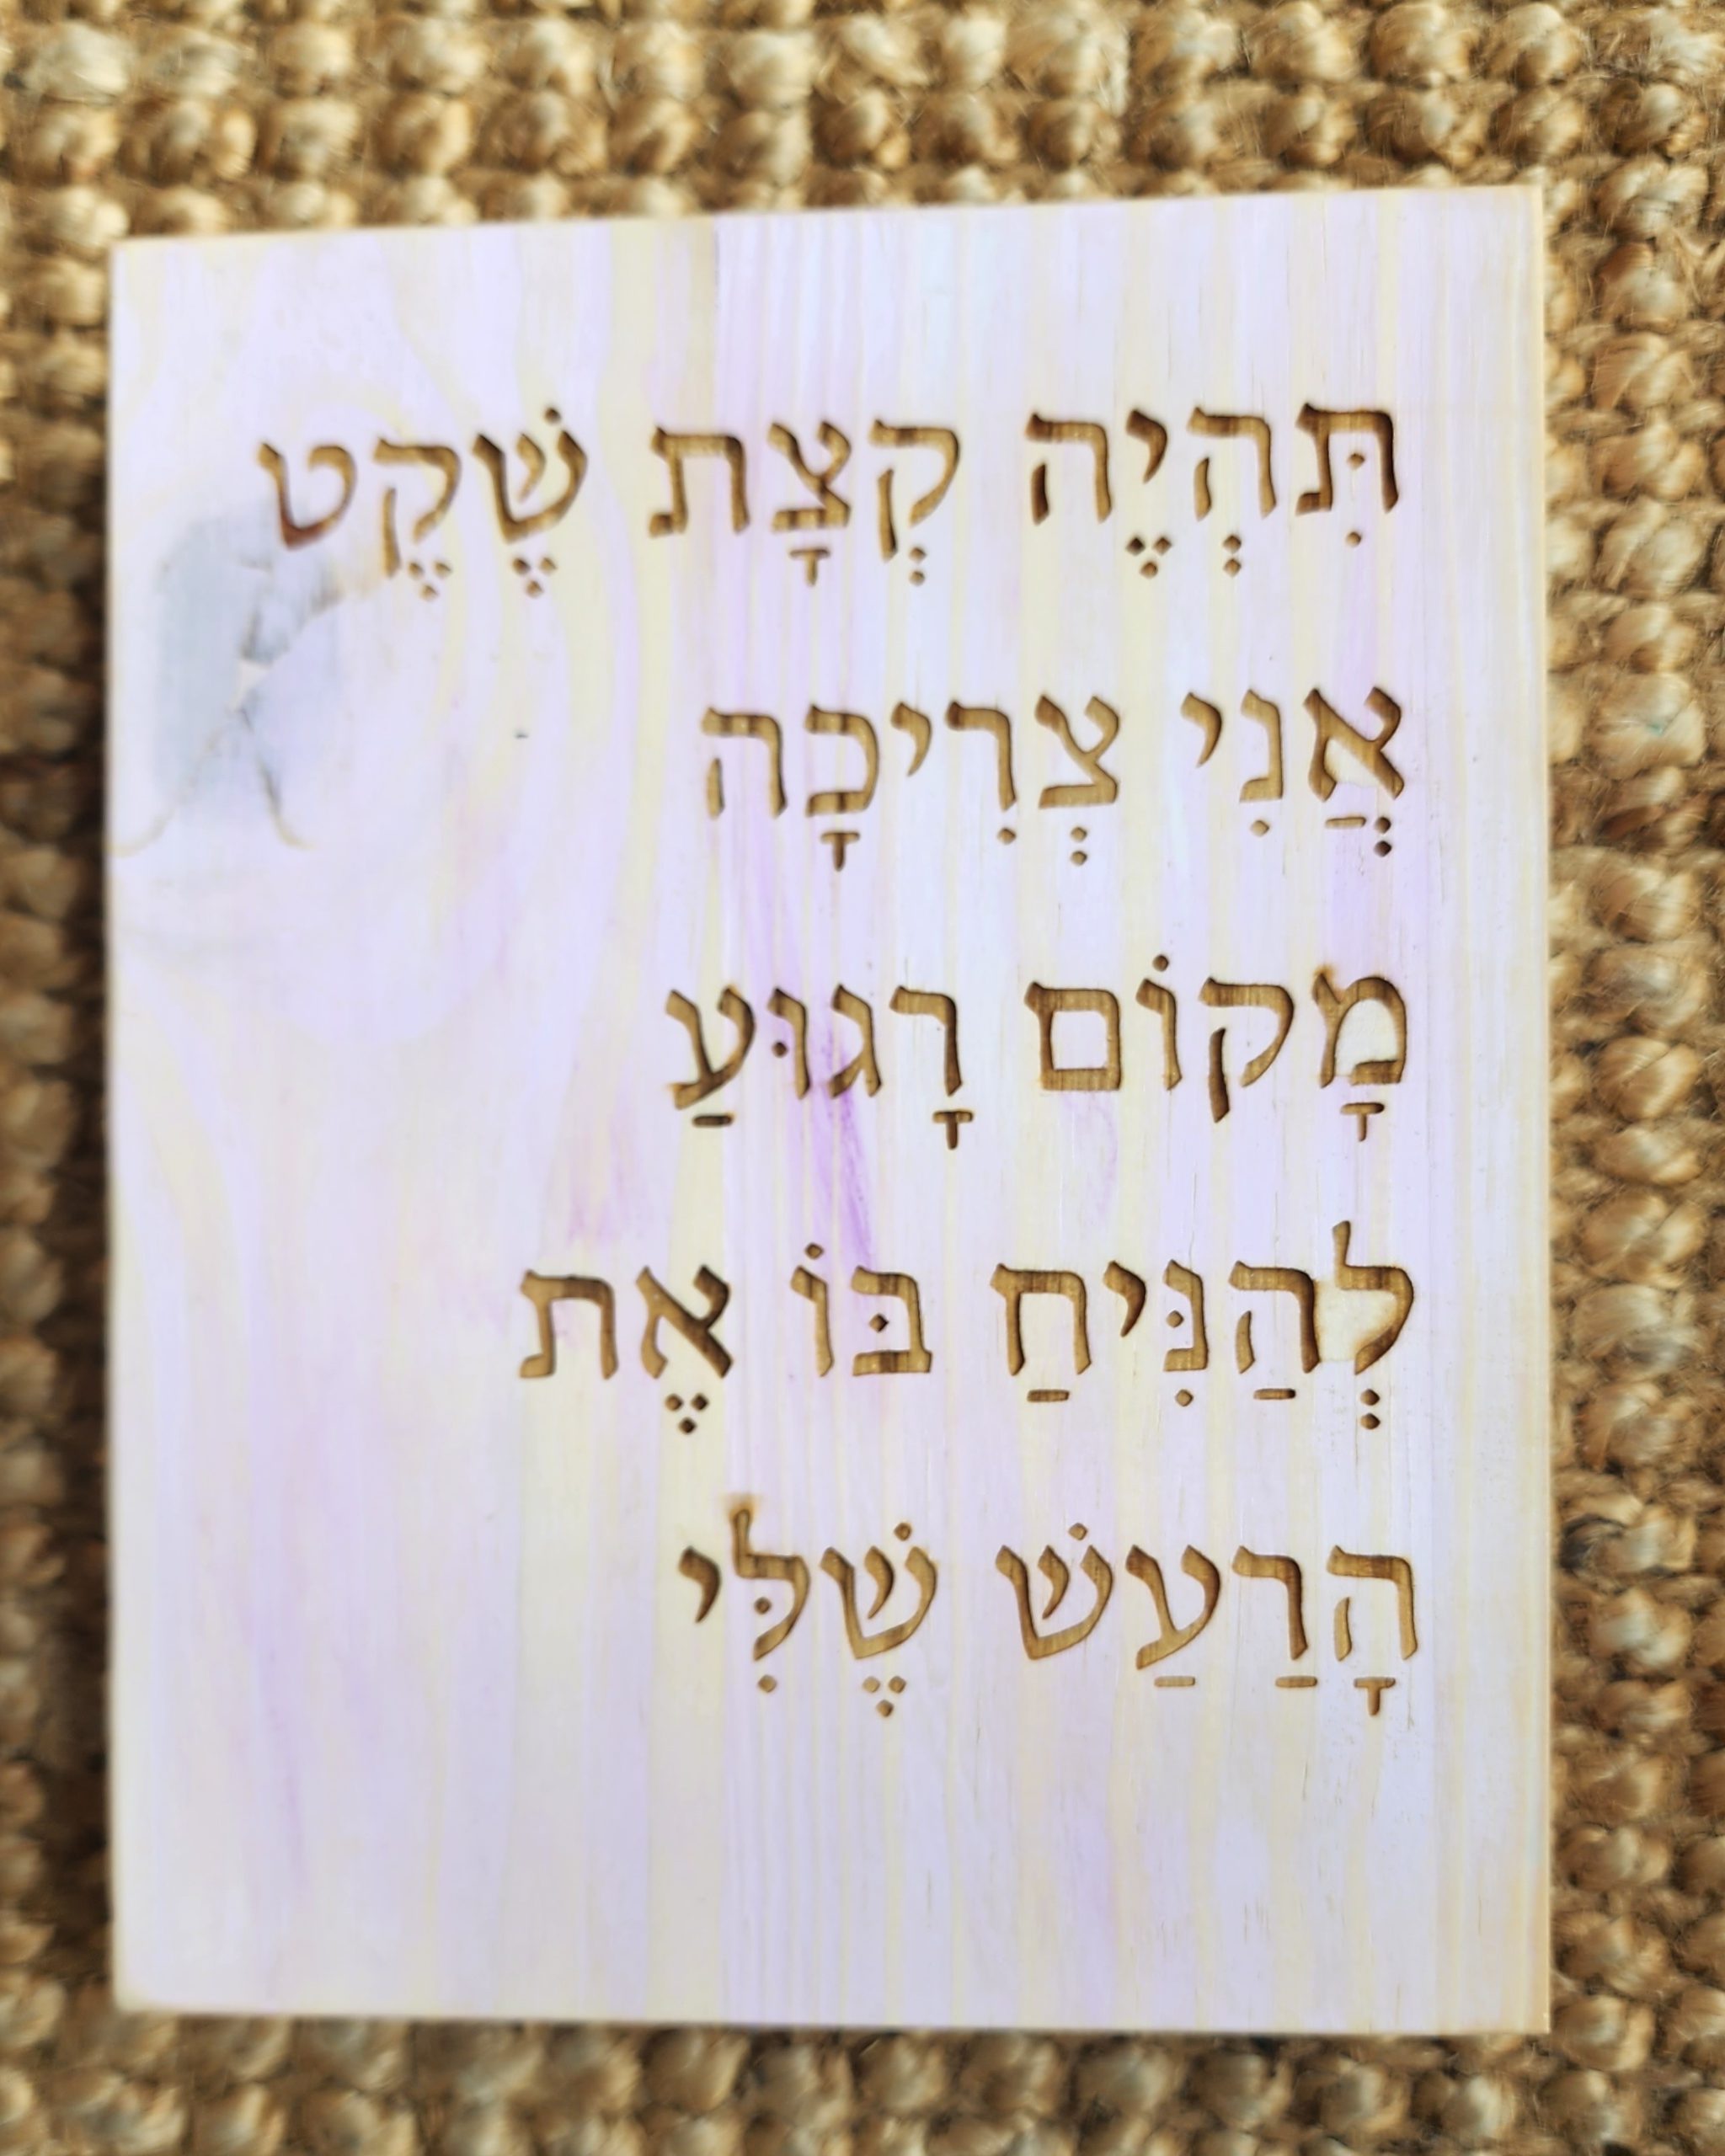 תִּהְיֶה קְצָת שֶׁקֶט
אֲנִי צְרִיכָה
מָקוֹם רָגוּעַ
לְהַנִּיחַ בּוֹ אֶת
הָרַעַשׁ שֶׁלִּי